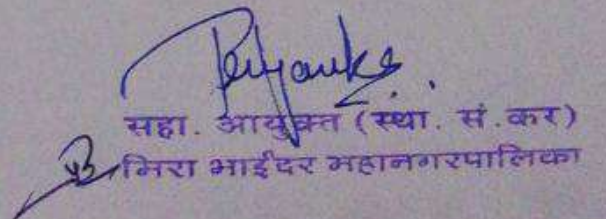 Priyanka
सहा. आयुक्त (स्था. सं.कर)
मिरा भाईंदर महानगरपालिका